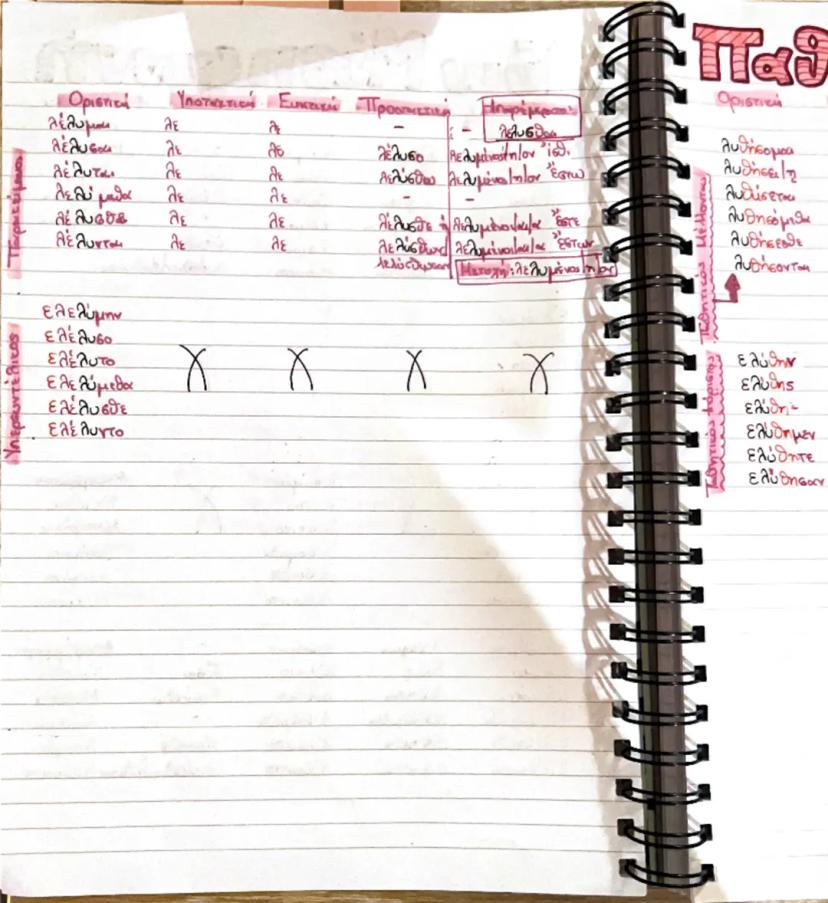 Οριστική Υποτακτική Ευκτική Προστακτική Απαρέμφατο:
λέλυμαι λε λε - - λελυσθαι
λέλυσαι λε λε λέλυσο λελυμένος/η/ον ἴσθι
λέλυται λε λε λελύσθω λελυμένος/η/ον ἔστω
λελύμεθα λε λε - -
λέλυσθε λε λε λέλυσθε λελυμένοι/αι/α ἔστε
λέλυνται λε λε λελύσθων λελυμένοι/αι/α ἔστων
λελύσθωσαν Μετοχή: λελυμένος/η/ον
Παρακείμενος
ελελύμην
ελέλυσο
ελέλυτο
ελελύμεθα
ελέλυσθε
ελέλυντο
Υπερσυντέλικος
Παθ
Οριστική
λυθήσομαι
λυθήσει/η
λυθήσεται
λυθησόμεθα
λυθήσεσθε
λυθήσονται
Παθητικός Μέλλοντας
ελύθην
ελύθης
ελύθη-
ελύθημεν
ελύθητε
ελύθησαν
Παθητικός Αόριστος